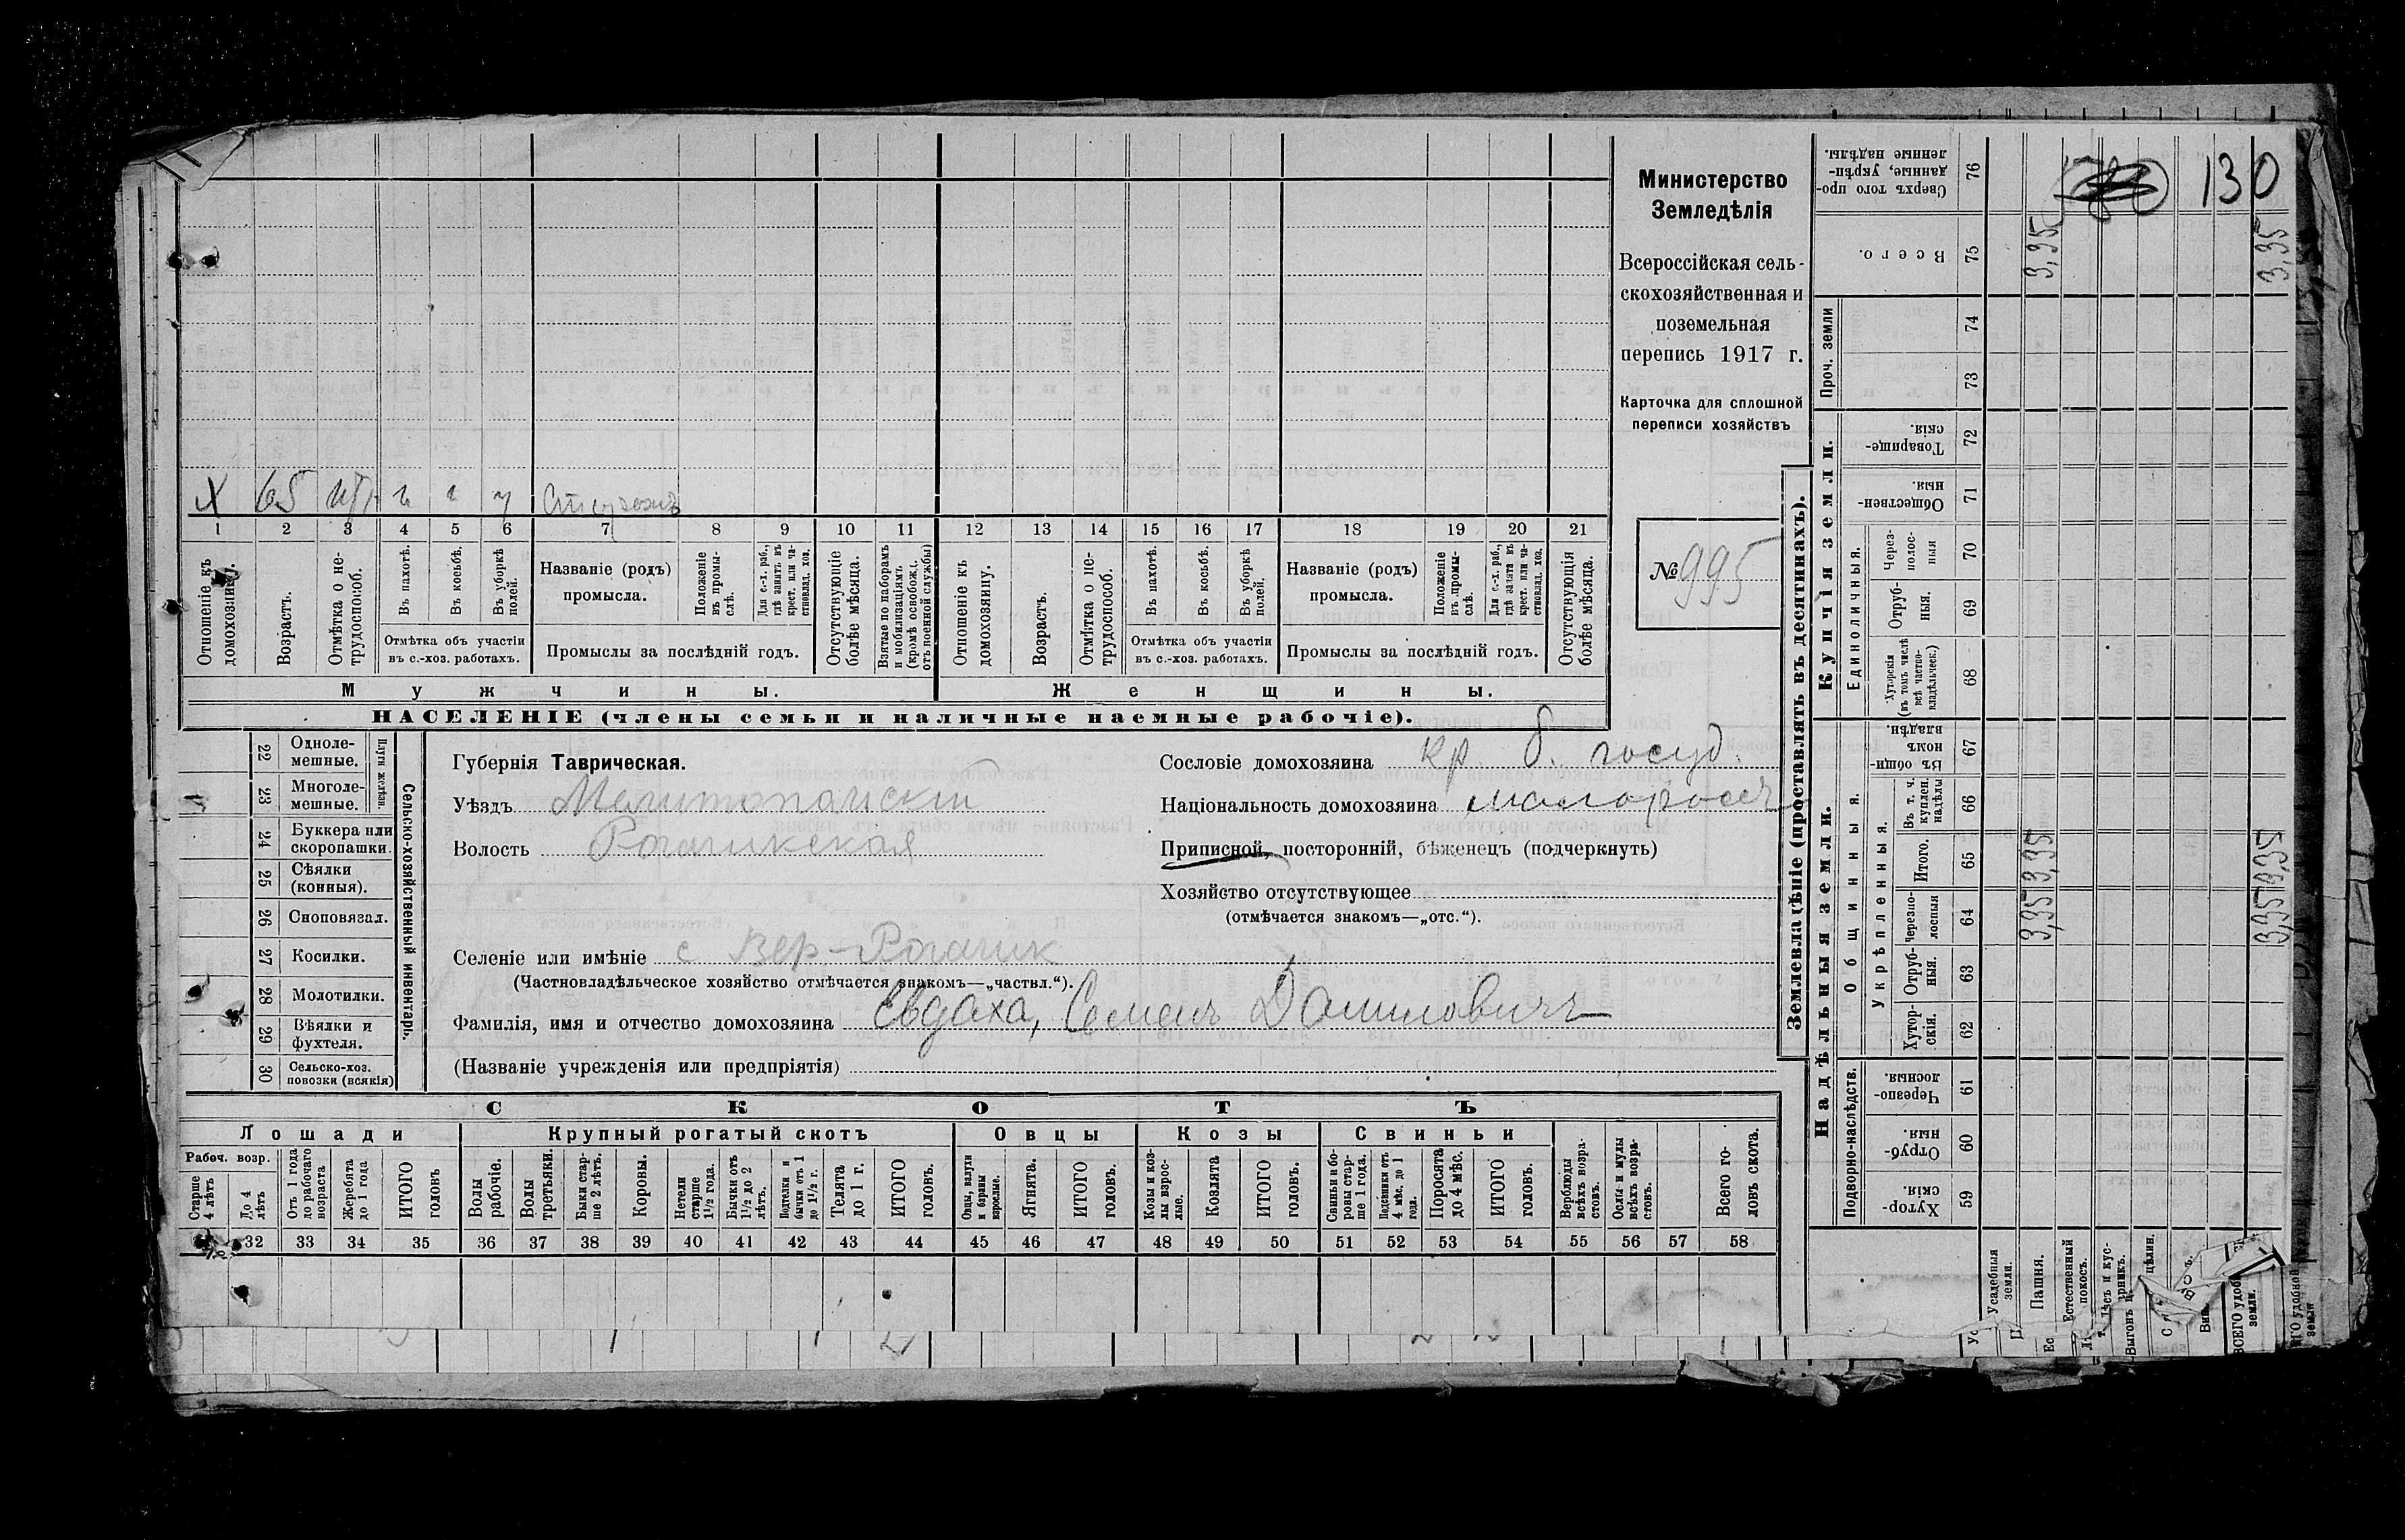 130
Министерство
Земледѣлія
Всероссійская сель-
скохозяйственная и
поземельная
перепись 1917 г.
Карточка для сплошной
переписи хозяйствъ
№ 995
Х 65
1 2 3 4 5 6 7 8 9 10 11 12 13 14 15 16 17 18 19 20 21
Отношеніе къ домохозяину.
Возрастъ.
Отмѣтка о не-трудоспособ.
Въ пахотѣ.
Въ косьбѣ.
Въ уборкѣ полей.
Отмѣтка объ участіи
въ с.-хоз. работахъ.
Названіе (родъ)
промысла.
Положеніе въ промы-слѣ.
Для с.-х. раб., гдѣ занятъ въ крест. или ча-стновлад. хоз.
Промыслы за послѣдній годъ.
Отсутствующіе болѣе мѣсяца.
Взятые по наборамъ и мобилизаціямъ (кромѣ освобожд. отъ военной службы)
Отношеніе къ домохозяину.
Возрастъ.
Отмѣтка о не-трудоспособ.
Въ пахотѣ.
Въ косьбѣ.
Въ уборкѣ полей.
Отмѣтка объ участіи
въ с.-хоз. работахъ.
Названіе (родъ)
промысла.
Положеніе въ промы-слѣ.
Для с.-х. раб., гдѣ занята въ крест. или ча-стновлад. хоз.
Промыслы за послѣдній годъ.
Отсутствующія болѣе мѣсяца.
Мужчины.
Женщины.
НАСЕЛЕНІЕ (члены семьи и наличные наемные рабочіе).
22 Одноле-мешные.
23 Многоле-мешные.
Плуги желѣзн.
24 Буккера или скоропашки.
25 Сѣялки (конныя).
26 Сноповязал.
27 Косилки.
28 Молотилки.
29 Вѣялки и фухтеля.
30 Сельско-хоз. повозки (всякія)
Сельско-хозяйственный инвентарь.
Губернія Таврическая.
Уѣздъ Мелитопольскій
Волость Рогачикская
Селеніе или имѣніе с Вер-Рогачик
(Частновладѣльческое хозяйство отмѣчается знакомъ—„частвл.“).
Фамилія, имя и отчество домохозяина Евдаха, Семенъ Даниловичъ
(Названіе учрежденія или предпріятія)
Сословіе домохозяина кр. б. госуд.
Національность домохозяина малороссъ
Приписной, посторонній, бѣженецъ (подчеркнуть)
Хозяйство отсутствующее
(отмѣчается знакомъ—„отс.“).
СКОТЪ
Лошади
Крупный рогатый скотъ
Овцы
Козы
Свиньи
Рабоч. возр.
Старше 4 лѣтъ
До 4 лѣтъ
Отъ 1 года до рабочаго возраста
Жеребята до 1 года
ИТОГО головъ
Волы рабочіе.
Волы третьяки.
Быки стар-ше 2 лѣтъ.
Коровы.
Нетели старше 1½ года.
Бычки отъ 1½ до 2 лѣтъ.
Подтелки и бычки отъ 1 до 1½ г.
Телята до 1 г.
ИТОГО головъ.
Овцы, валухи и бараны взрослые.
Ягнята.
ИТОГО головъ.
Козы и коз-лы взрос-лые.
Козлята
ИТОГО головъ.
Свиньи и бо-ровы стар-ше 1 года.
Подсвинки отъ 4 мѣс. до 1 года.
Поросята до 4 мѣс.
ИТОГО головъ.
Верблюды всѣхъ возра-стовъ.
Ослы и мулы всѣхъ возра-стовъ.
Всего го-ловъ скота.
32 33 34 35 36 37 38 39 40 41 42 43 44 45 46 47 48 49 50 51 52 53 54 55 56 57 58
Землевладѣніе (проставлять въ десятинахъ).
Надѣльныя земли.
Купчія земли.
Проч. земли
Подворно-наслѣдств.
Общинныя.
Укрѣпленныя.
Единоличныя.
Сверхъ того про-данные, укрѣп-ленные надѣлы. 76
Всего. 75 3,35 3,35
74
73
Товарище-скія. 72
Обществен-ныя. 71
Через-полос-ныя 70
Отруб-ныя. 69
Хуторскія (въ томъ числѣ всѣ частно-владѣльческ.) 68
Въ общин-номъ владѣн. 67
Въ т. ч. куплен. надѣлы 66
Итого. 65 3,35 3,35
Черезпо-лосныя 64 3,35 3,35
Отруб-ныя. 63
Хутор-скія. 62
Черезпо-лосныя. 61
Отруб-ныя. 60
Хутор-скія. 59
Усадебныя земли.
Пашня.
Естественный покосъ.